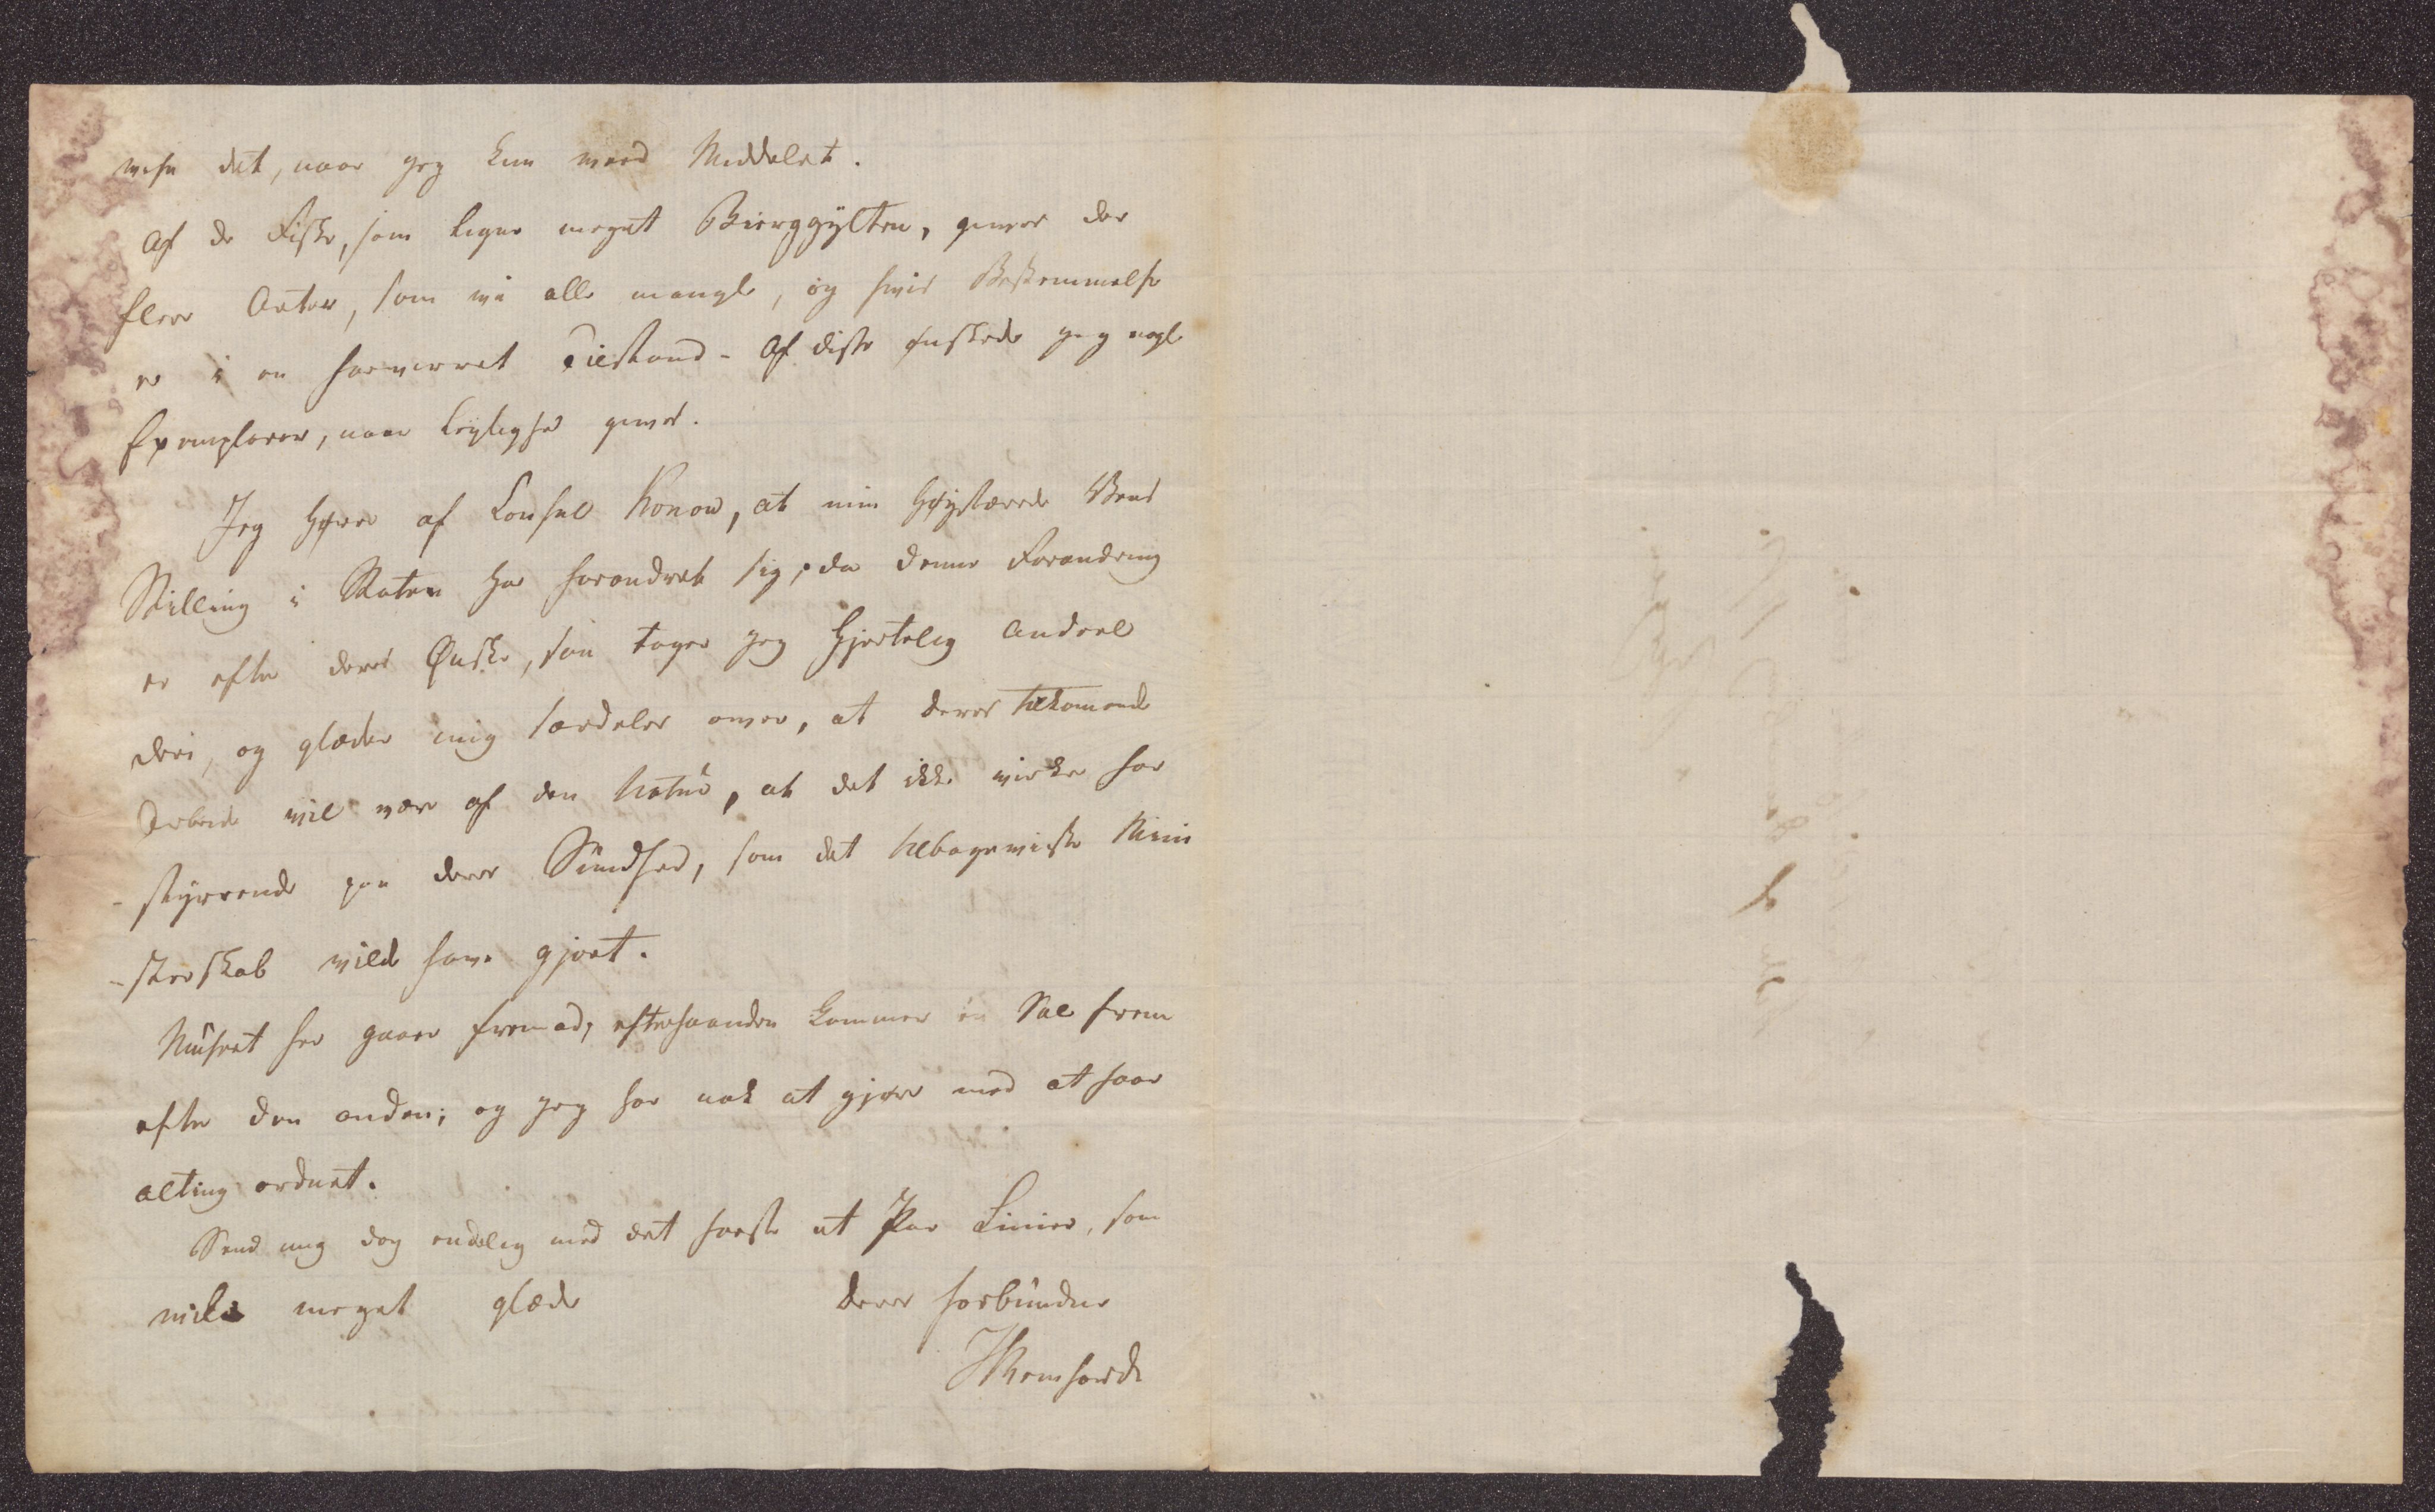 vise det, naar jeg kun veed Middelet.
Af de Fiske, som ligne meget Bierggylten, gives der
flere Arter, som vi alle mangle, og hvis Bestemmelse
er i en forvirret Tilstand - Af disse ønskede jeg nogle
Exemplarer, naar Leylighed gives.
Jeg hører af Consul Konow, at min høystærede Vens
Stilling i Staten har forandret sig; da denne Forandring
er efter deres Ønske, saa tager jeg hjertelig Andeel
deri, og glæder mig særdeles over, at deres tilkomende
Arbeide vil være af den Natur, at det ikke virker for
-styrrende paa deres Sundhed, som det tilbageviste Mini
-sterskab vilde have gjort.
Museet her gaaer fremad, efterhaanden kommer en Sal frem
efter den anden; og jeg har nok at gjøre med at faae
alting ordnet.
Send mig dog endelig med det første et Par Linier, som
vil meget glæde deres forbundne
JReinhardt